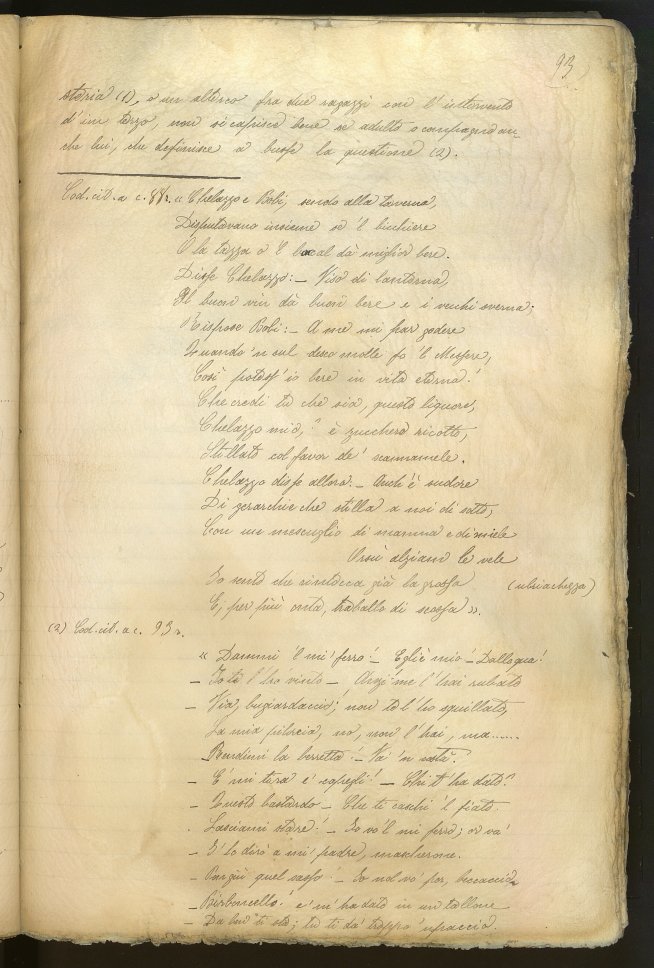 93
storia (1), o un alterco fra due ragazzi con l'intervento
d'un terzo, non si capisce bene se adulto o compagno an-
che lui, che definisce a busse la questione (2).
Cod. cit. a c. 88r. « Chelazzo e Bobi, sendo alla taverna,
Disputavano insieme se 'l bicchiere
O la tazza o 'l bocal dà miglior bere.
Disse Chelazzo: – Viso di lanterna,
Il buon vin dà buon bere e i vecchi sverna;
Rispose Bobi: – A me mi par godere
Quando 'n sul desco molle fo 'l Messere,
Così potess' io bere in vita eterna!
Che credi tu che sia, questo liquore,
Chelazzo mio,? è zucchero ricotto,
Stillato col favor de' cannamele.
Chelazzo disse allora: – Anch'è sudore
Di gerarchie che stilla a noi di sotto,
Con un mescuglio di manna e di miele
Orsù alziam le vele
Io sento che rintocca già la grossa (ubriachezza)
E, per più onta, traballo di scossa ».
(2) Cod. cit. a c. 93 r.
« Dammi 'l mi' ferro! – Egli è mio – Dallo qua!
– Io te l'ho vinto – Anzi me l'hai rubato
– Via, bugiardaccio, non te l'ho squillato,
La mia no, non l'hai, ma......
– Rendimi la berretta! – Va' 'n
– E' mi tira e' – Chi t'ha dato?
– Questo bastardo – Che ti caschi 'l fiato.
. Lasciami stare! – Io vo' 'l mi ferro; or va'
– E' lo dirò a mi' padre, mascherone.
– Pon giù quel sasso! – Io nol vo' por, beccaccio
– Ribroncello! e' m'ha dato in un tallone
– Da ben ti sta; tu ti da' troppo